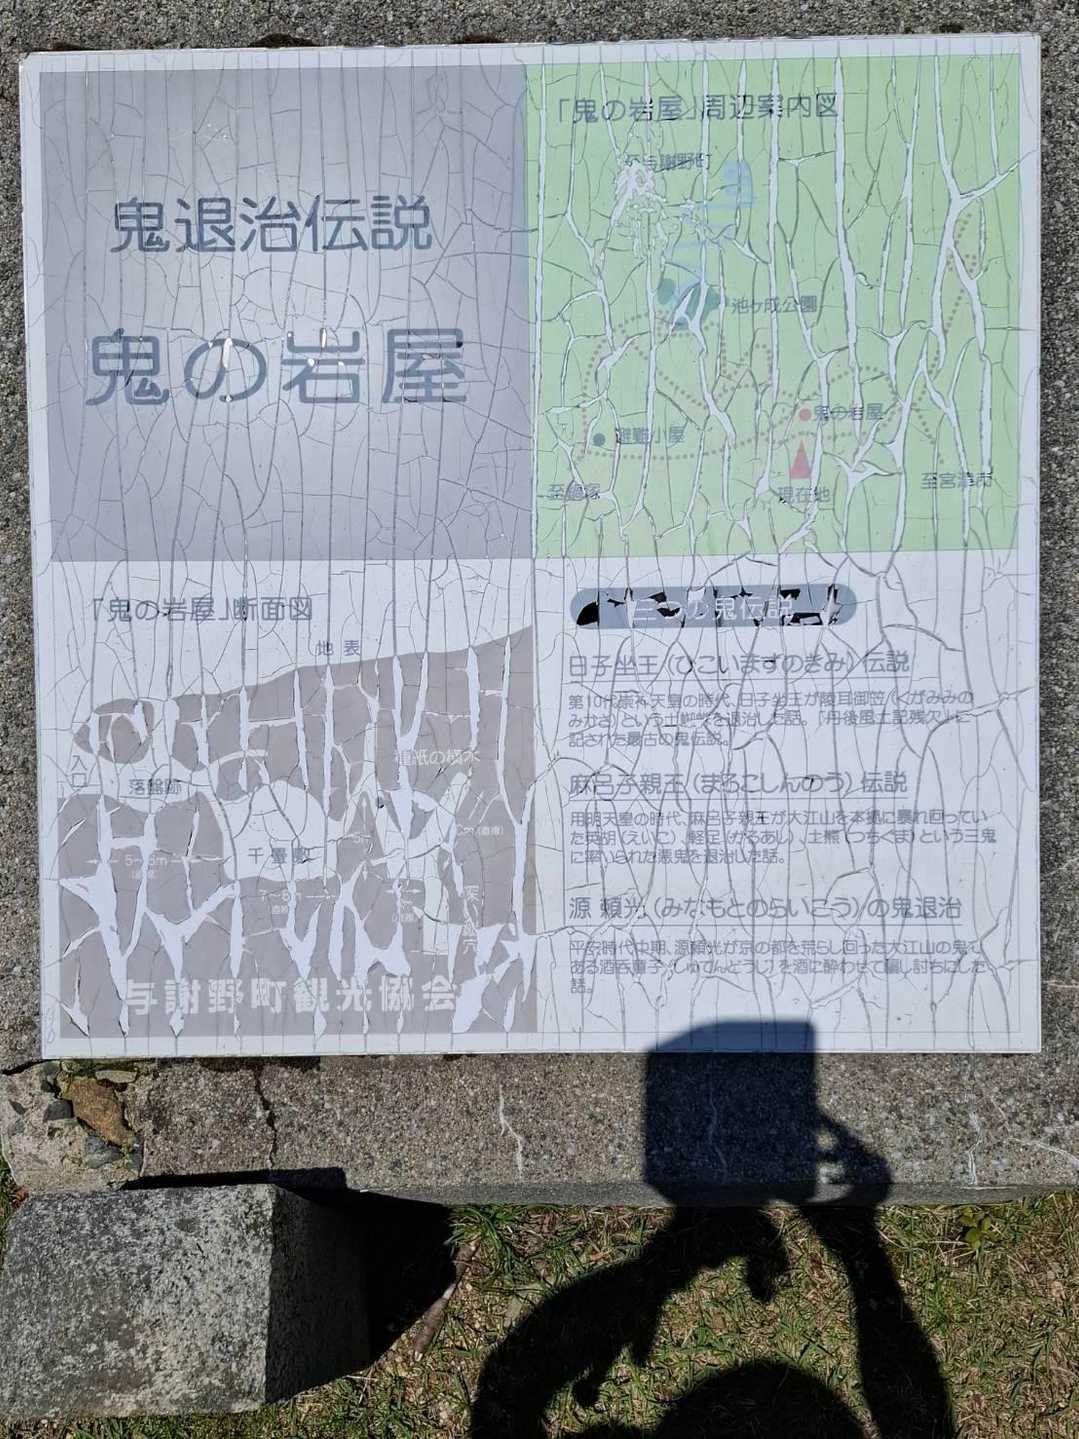 鬼退治伝説
鬼の岩屋
「鬼の岩屋」周辺案内図
至与謝野町
池ヶ成公園
鬼の岩屋
避難小屋
至鍋塚
現在地
至宮津市
「鬼の岩屋」断面図
地表
入口
落盤跡
千畳敷
5~6m
深い縦穴
与謝野町観光協会
三つの鬼伝説
日子坐王(ひこいますのきみ)伝説
第10代崇神天皇の時代、日子坐王が陵耳御笠(くがみみの
みかさ)という土蜘蛛を退治した話。「丹後風土記残欠」に
記された最古の鬼伝説。
麻呂子親王(まろこしんのう)伝説
用明天皇の時代、麻呂子親王が大江山を本拠に暴れ回ってい
た英胡(えいこ)、軽足(かるあし)、土熊(つちぐま)という三鬼
に率いられた悪鬼を退治した話。
源 頼光(みなもとのらいこう)の鬼退治
平安時代中期、源頼光が京の都を荒らし回った大江山の鬼で
ある酒呑童子(しゅてんどうじ)を酒に酔わせて騙し討ちにした
話。